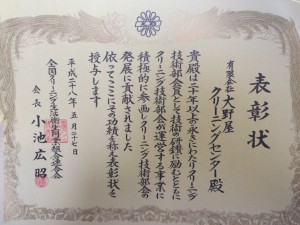 表彰状
有限会社 大野屋
クリーニングセンター殿
貴殿は二十年以上の永きにわたりクリーニング
技術部会員として技術の研鑽に励むとともに
クリーニング技術部会が運営する事業に
積極的に参画しクリーニング技術部会の
発展に貢献されました
依ってここにその功績を称え表彰状を
授与します
平成二十八年五月二十七日
全国クリーニング生活衛生同業組合連合会
会長 小池広昭